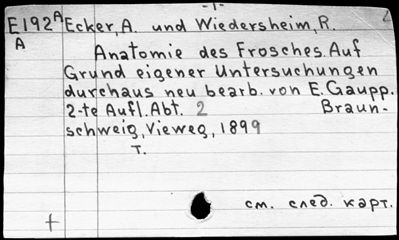 -1-
E192ᴬ Ecker, A. und Wiedersheim, R.
A
Anatomie des Frosches. Auf
Grund eigener Untersuchungen
durchaus neu bearb. von E. Gaupp.
2-te Aufl. Abt. 2 Braun-
schweig, Vieweg, 1899
T.
см. след. карт.